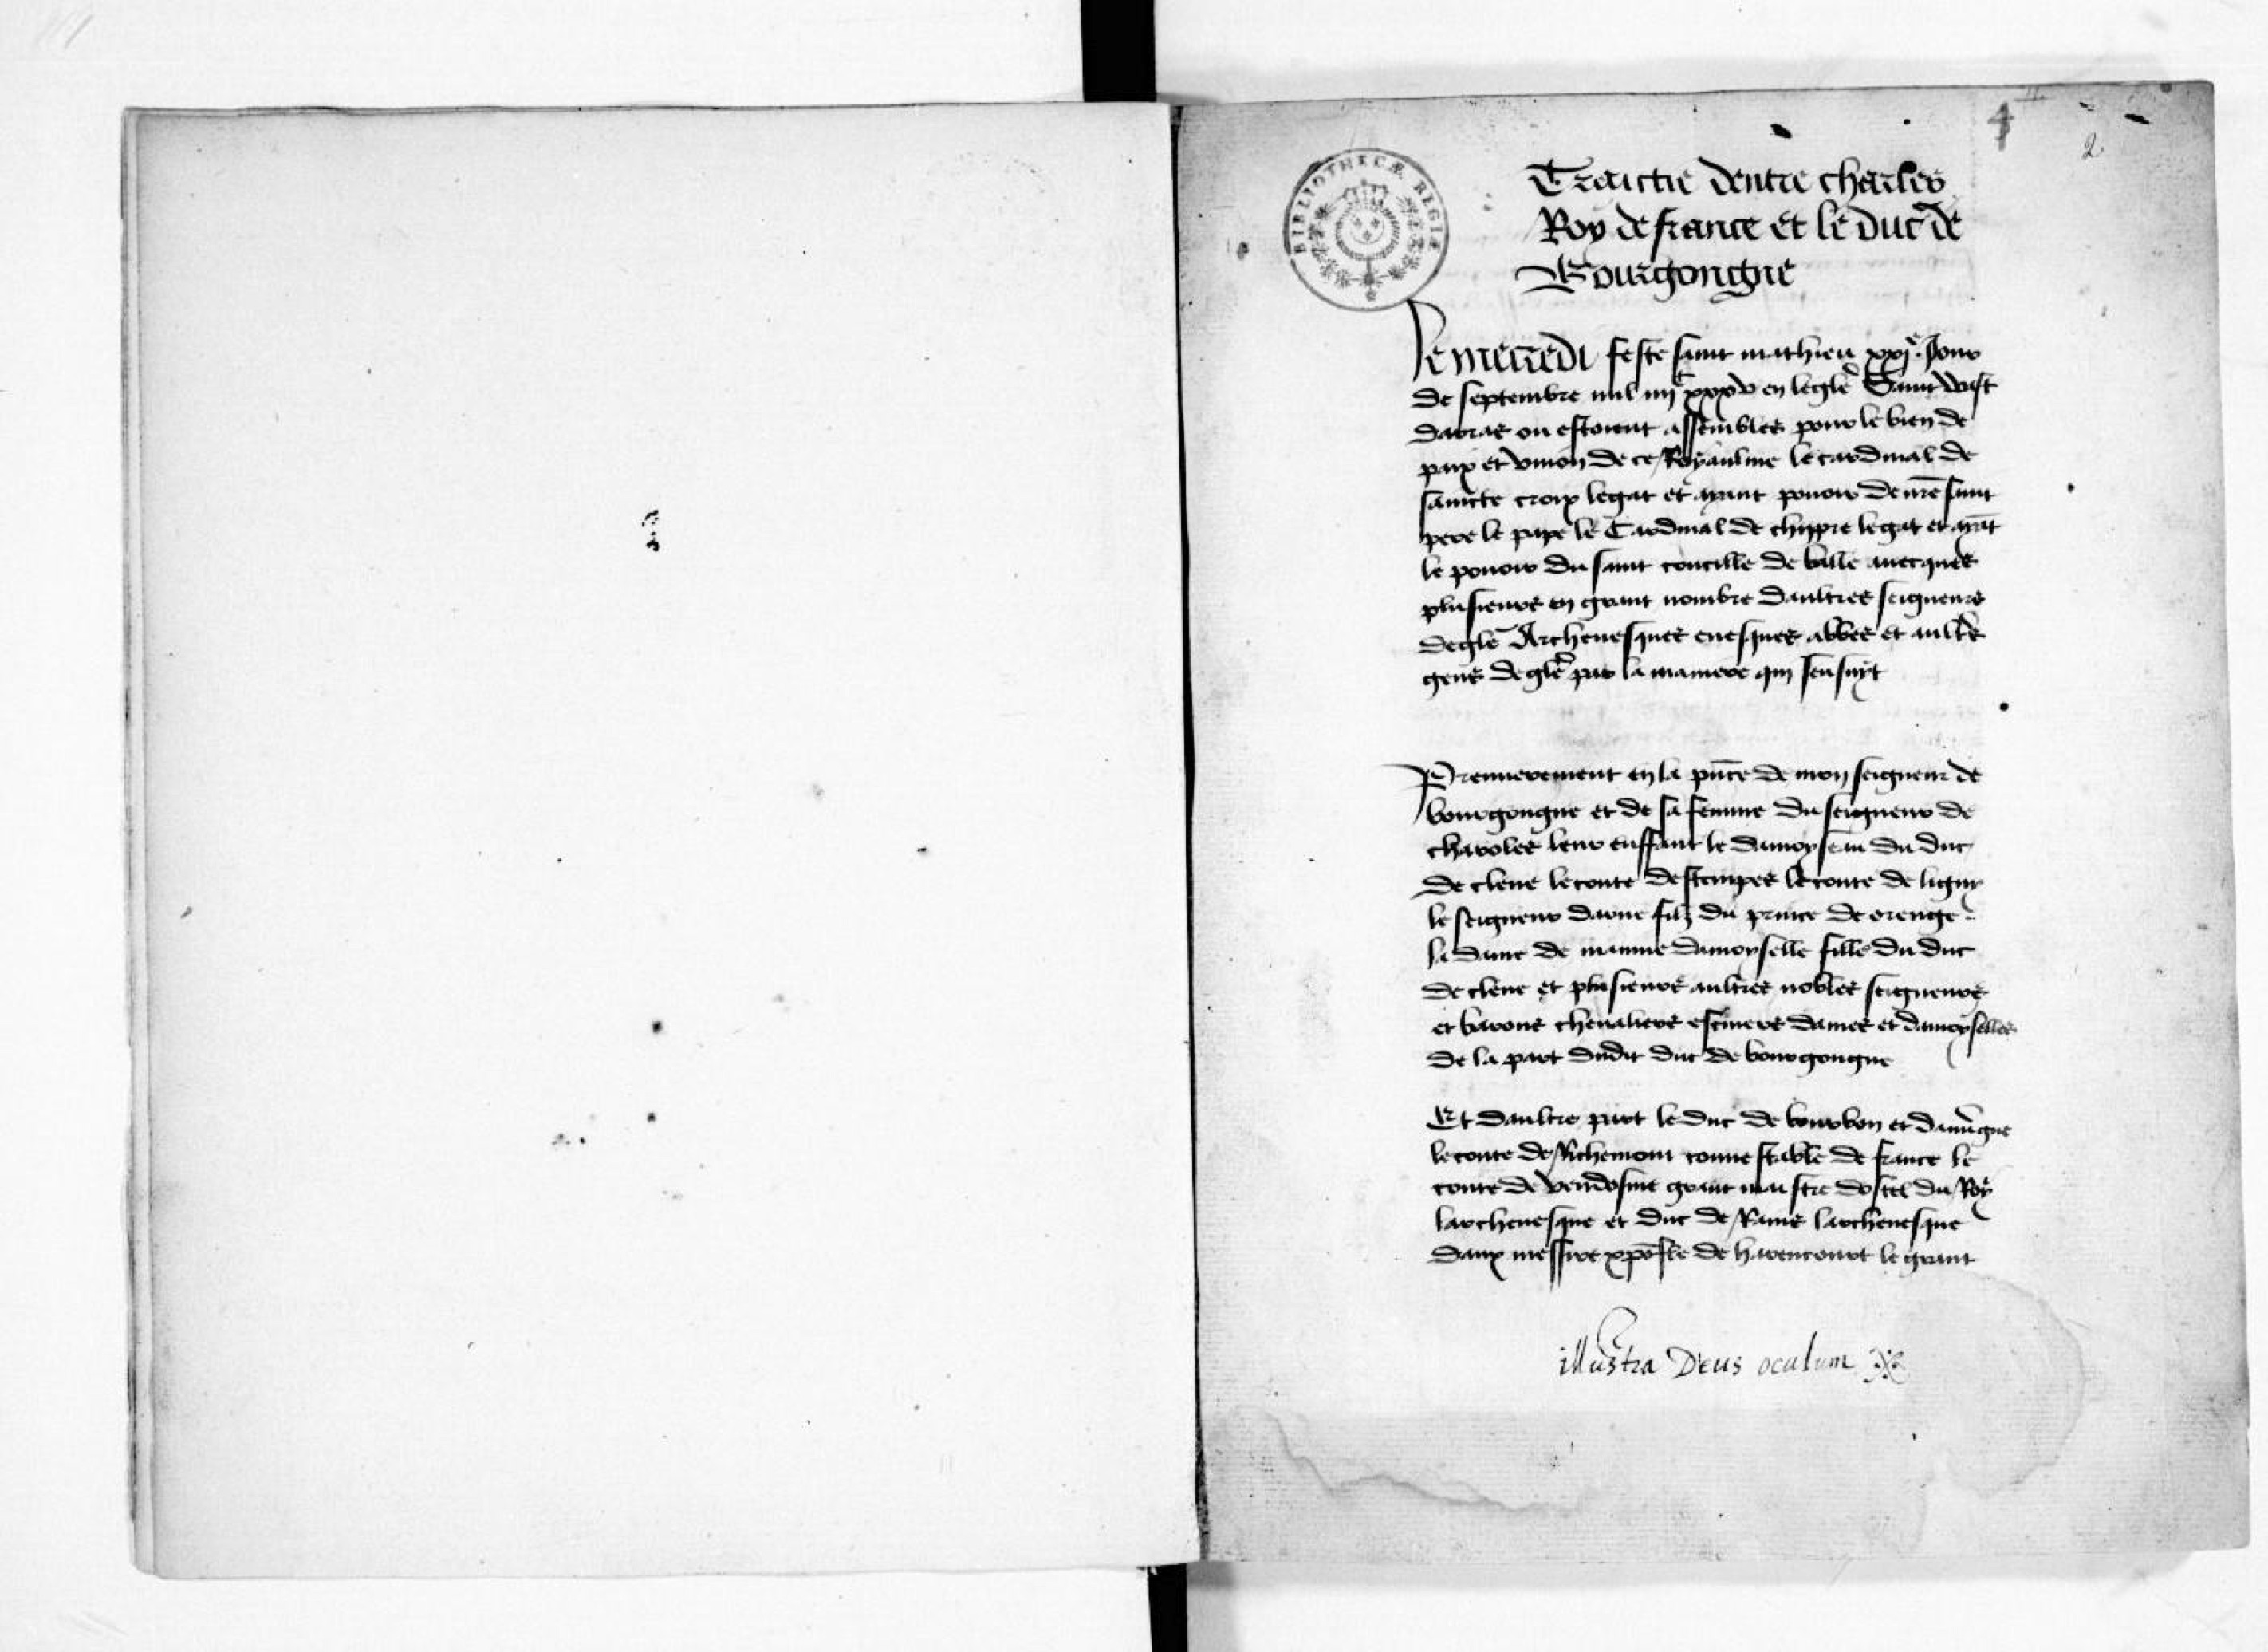 4
2
BIBLIOTHECÆ REGIÆ
Traictie dentre charles
Roy de france et le duc de
Bourgongne
Le mercredi feste saint mathieu xxje Jour
de septembre mil iiijc xxxv en leglē Saint Vast
darras ou estoient assembles pour le bien de
paix et vnion de ce Royaulme le cardinal de
saincte croix legat et ayant pouoir de nrē saint
pere le pape le Cardinal de chippre legat et ayāt
le pouoir du saint concille de balle auecques
plusieurs en grant nombre daultres seigneurs
deglē Archeuesques euesques abbes et aultrs
gens deglē par la maniere qui sensuyt
Premierement en la pñce de mon seigneur de
bourgongne et de sa femme du seigneur de
charoles leur enffant le damoyseau du duc
de cleue le conte destempes le conte de ligny
le seigneur darne filz du prince de orenge
la dame de mamme damoyselle fille du duc
de cleue et plusieurs aultres nobles seigneurs
et barons cheualiers escuiers dames et damoyselles
de la part dudit duc de bourgongne
Et daultre part le duc de bourbon et dauūgne
le conte de Richemont connestable de france le
conte de vendosme grant maistre dostel du Roy
larcheuesque et duc de Rains larcheuesque
daux messire xpōfle de harencourt le grant
illustra Deus oculum